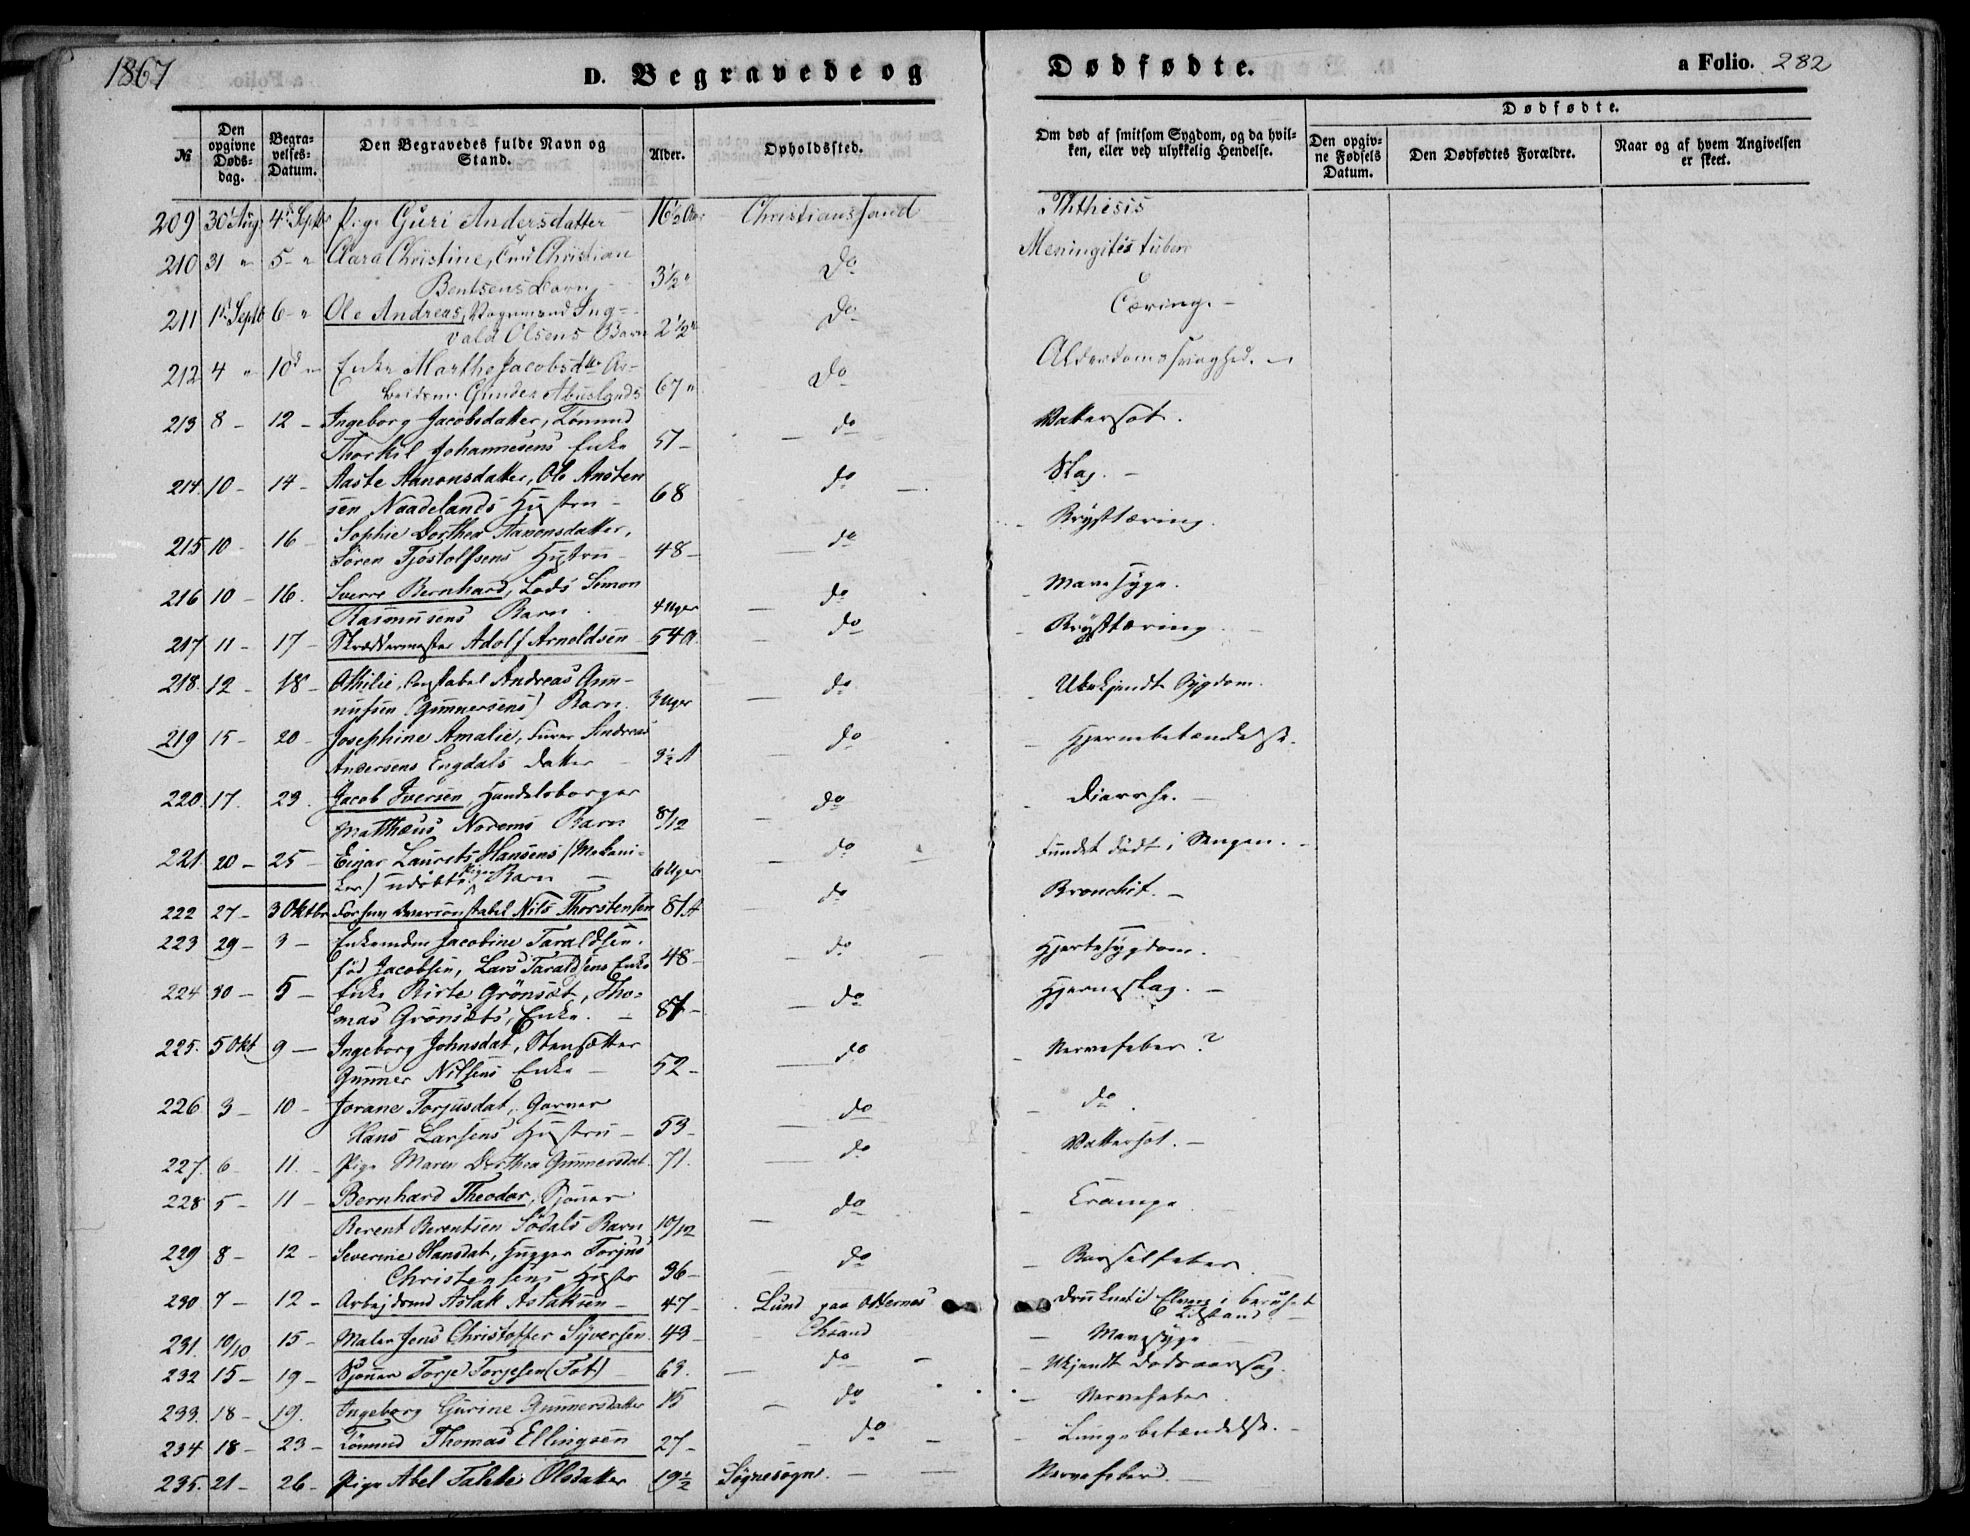 1867
D. Begravede og Dødfødte. a Folio. 282
№ Den opgivne Døds-dag. Begra-velses-Datum. Den Begravedes fulde Navn og Stand. Alder. Opholdssted. Om død af smitsom Sygdom, og da hvil-ken, eller ved ulykkelig Hendelse. Dødfødte. Den opgiv-ne Fødsels Datum. Den Dødfødtes Forældre. Naar og af hvem Angivelsen er skeet.
209 30 Aug 4de Septbr Pige Guri Andersdatter 16½ Aar Christianssand Phthisis
210 31 " 5 - " Clara Christine, Christian
Bentsens Barn 3½ " Do Meningitis tuberc
211 1st Septb 6 - " Ole Andreas, Vognmand Ing-
vald Olsens Barn 2½ " Do Tæring. -
212 4 " 10d " Enke Marthe Jacobsdtr Ar-
beidsm. Gunder Abuslands 67 " Do Alderdomssvaghed.
213 8 - 12 - Ingeborg Jacobsdatter, Tømmd
Thorkil Johannesens Enke 57 - do Vattersot.
214. 10 - 14 - Aaste Aanonsdatter, Ole Ansten
sen Naadelands Hustru - 68 do Slag. -
215 10 - 16 - Sophie Dorthea Aanonsdatter,
Søren Tjøstolfsens Hustru - 48 - do Brysttæring.
216 10 - 16. Sverre Bernhard, Lods Simon
Rasmusens Barn. 4 Uger do Mavesyge.
217 11 - 17 - Skræddermester Adolf Arnoldsen 54 A. do Brysttæring.
218. 12 - 18 - Othilie, Constabel Andreas Gun-
nusen (Gunnersens) Barn. 3 Uger do Ubekjendt Sygdom.
219 15 - 20 - Josephine Amalie, Furer Andreas
Andersens Engdals datter 3½ A do Hjernebetændelse.
220. 17. 23. Jacob Iversen, Handelsborger
Matthæus Norems Barn 8/12 do Diarrhe. -
221. 20 - 25 - Einar Laurets Hansens (Mekani-
ker) udøbte Pige Barn - 6 Uger do Fundet dødt i Sengen. -
222 27 - 3 Oktbr Forhen Overconstabel Nils Thorstensen 81 A do Bronchit. -
223 29 - 3 - Enkemadm Jacobine Taraldsen.
fød Jacobsen, Lars Taraldsens Enke 48 - do Hjertesygdom.
224 30 - 5 - Enke Birte Grönsæt, Tho-
mas Grönsets, Enke. - 81 - do Hjerneslag. -
225. 5 Okt 9 - Ingeborg Johnsdat, Stensætter
Gunner Nilsens Enke - 52 - do Nervefeber?
226 3 - 10 - Jorane Torjusdat, Garver
Hans Larsens Hustru - 53 - do do.
227. 6 - 11. - Pige Maren Dorthea Gunnersdat. 71. do Vattersot. -
228 5 - 11 - Bernhard Theodor, Skomr
Berent Berentsen Södals Barn 10/12 do Crampe
229 8 - 12 - Severine Hansdat, Hugger Torjus
Christensens Hustr 36 - do Barselfeber
230 7 - 12 - Arbejdsmd Aslak Aslaksen - 47 - Lund paa Odernes Druknet i Elven i beruset
Tilstand
231. 10/10 15 - Maler Jens Christoffer Syversen. 49 - Chsand Mavesyge
232 15 - 19 - Skomr Torje Torjesen (Tot) 63. do Ukjendt Dødsaarsag.
233. 18 - 19. Ingeborg Gurine Gunnersdatter 15 do Nervefeber
234 18 - 23 - Tömmd Thomas Ellingsen 27 - do Lungebetændelse. -
235. 21 - 26 - Pige Abel Taleke Olsdatter 19½ Søgnesogn. Nervefeber. -